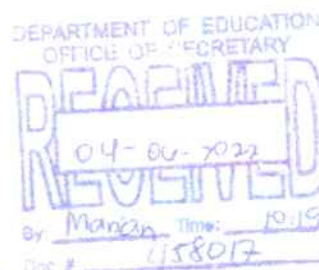 DEPARTMENT OF EDUCATION
OFFICE OF SECRETARY
RECEIVED
04-06-2022
By Marian Time: 10:19
Doc # 458017